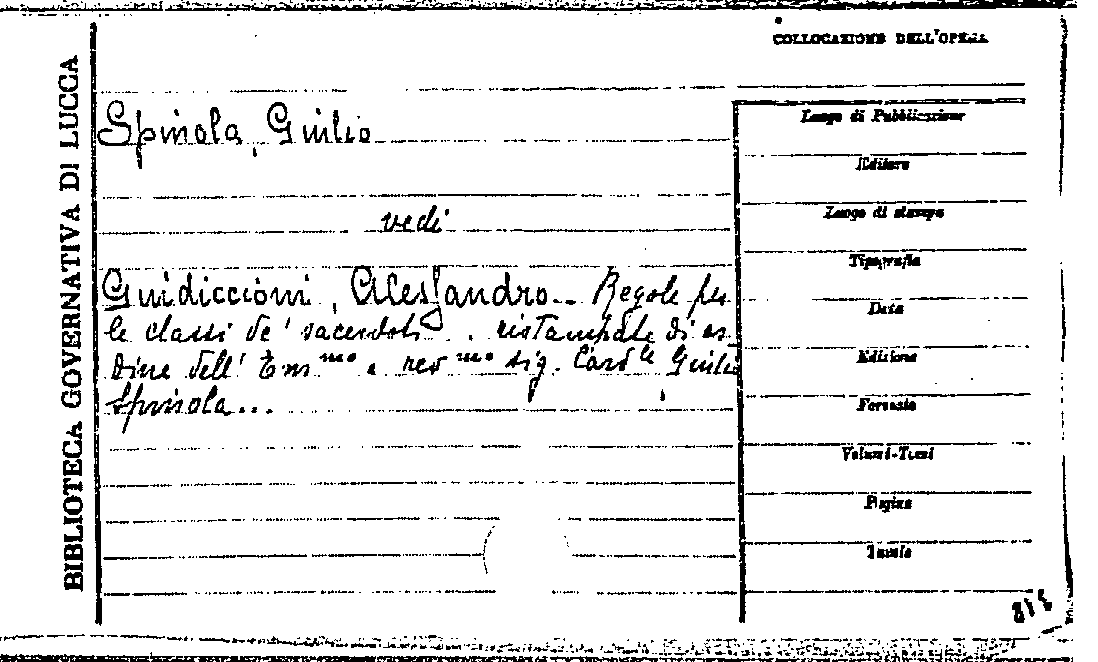 BIBLIOTECA GOVERNATIVA DI LUCCA
COLLOCAZIONE DELL'OPERA
Spinola, Giulio
vedi
Guidiccioni, Alessandro.. Regole per
le classi de' sacerdoti . . ristampate di or
dine dell' Em mo e rev mo sig. Card le Giulio
Spinola...
Luogo di Pubblicazione
Editore
Luogo di stampa
Tipografia
Data
Edizione
Formato
Volumi-Tomi
Pagine
Tavole